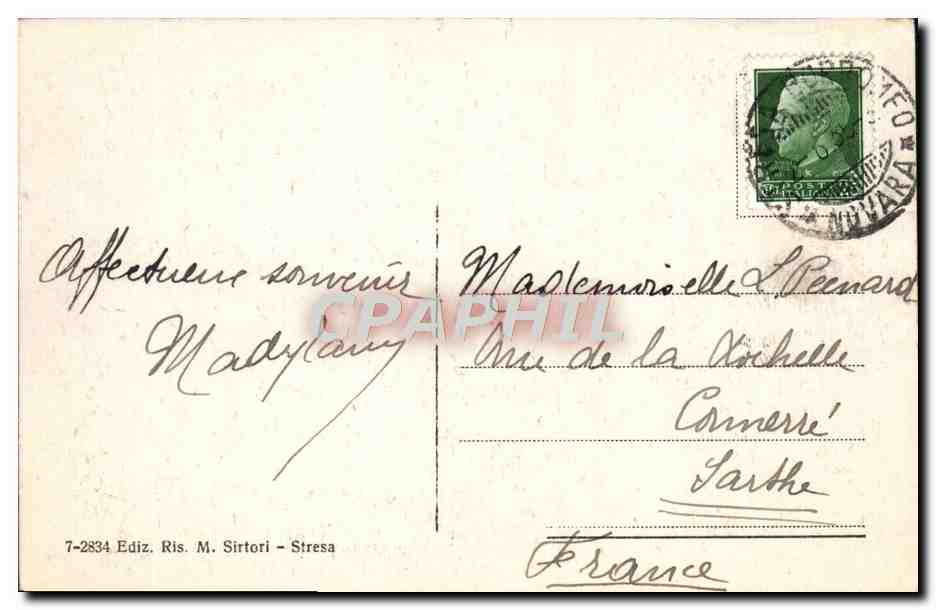 Affectueux souvenir
Mademoiselle L.
Rue de la
Connerré
Sarthe
France
7-2834 Ediz. Ris. M. Sirtori - Stresa
POSTE
ITALIANE
NOVARA
CPAPHIL